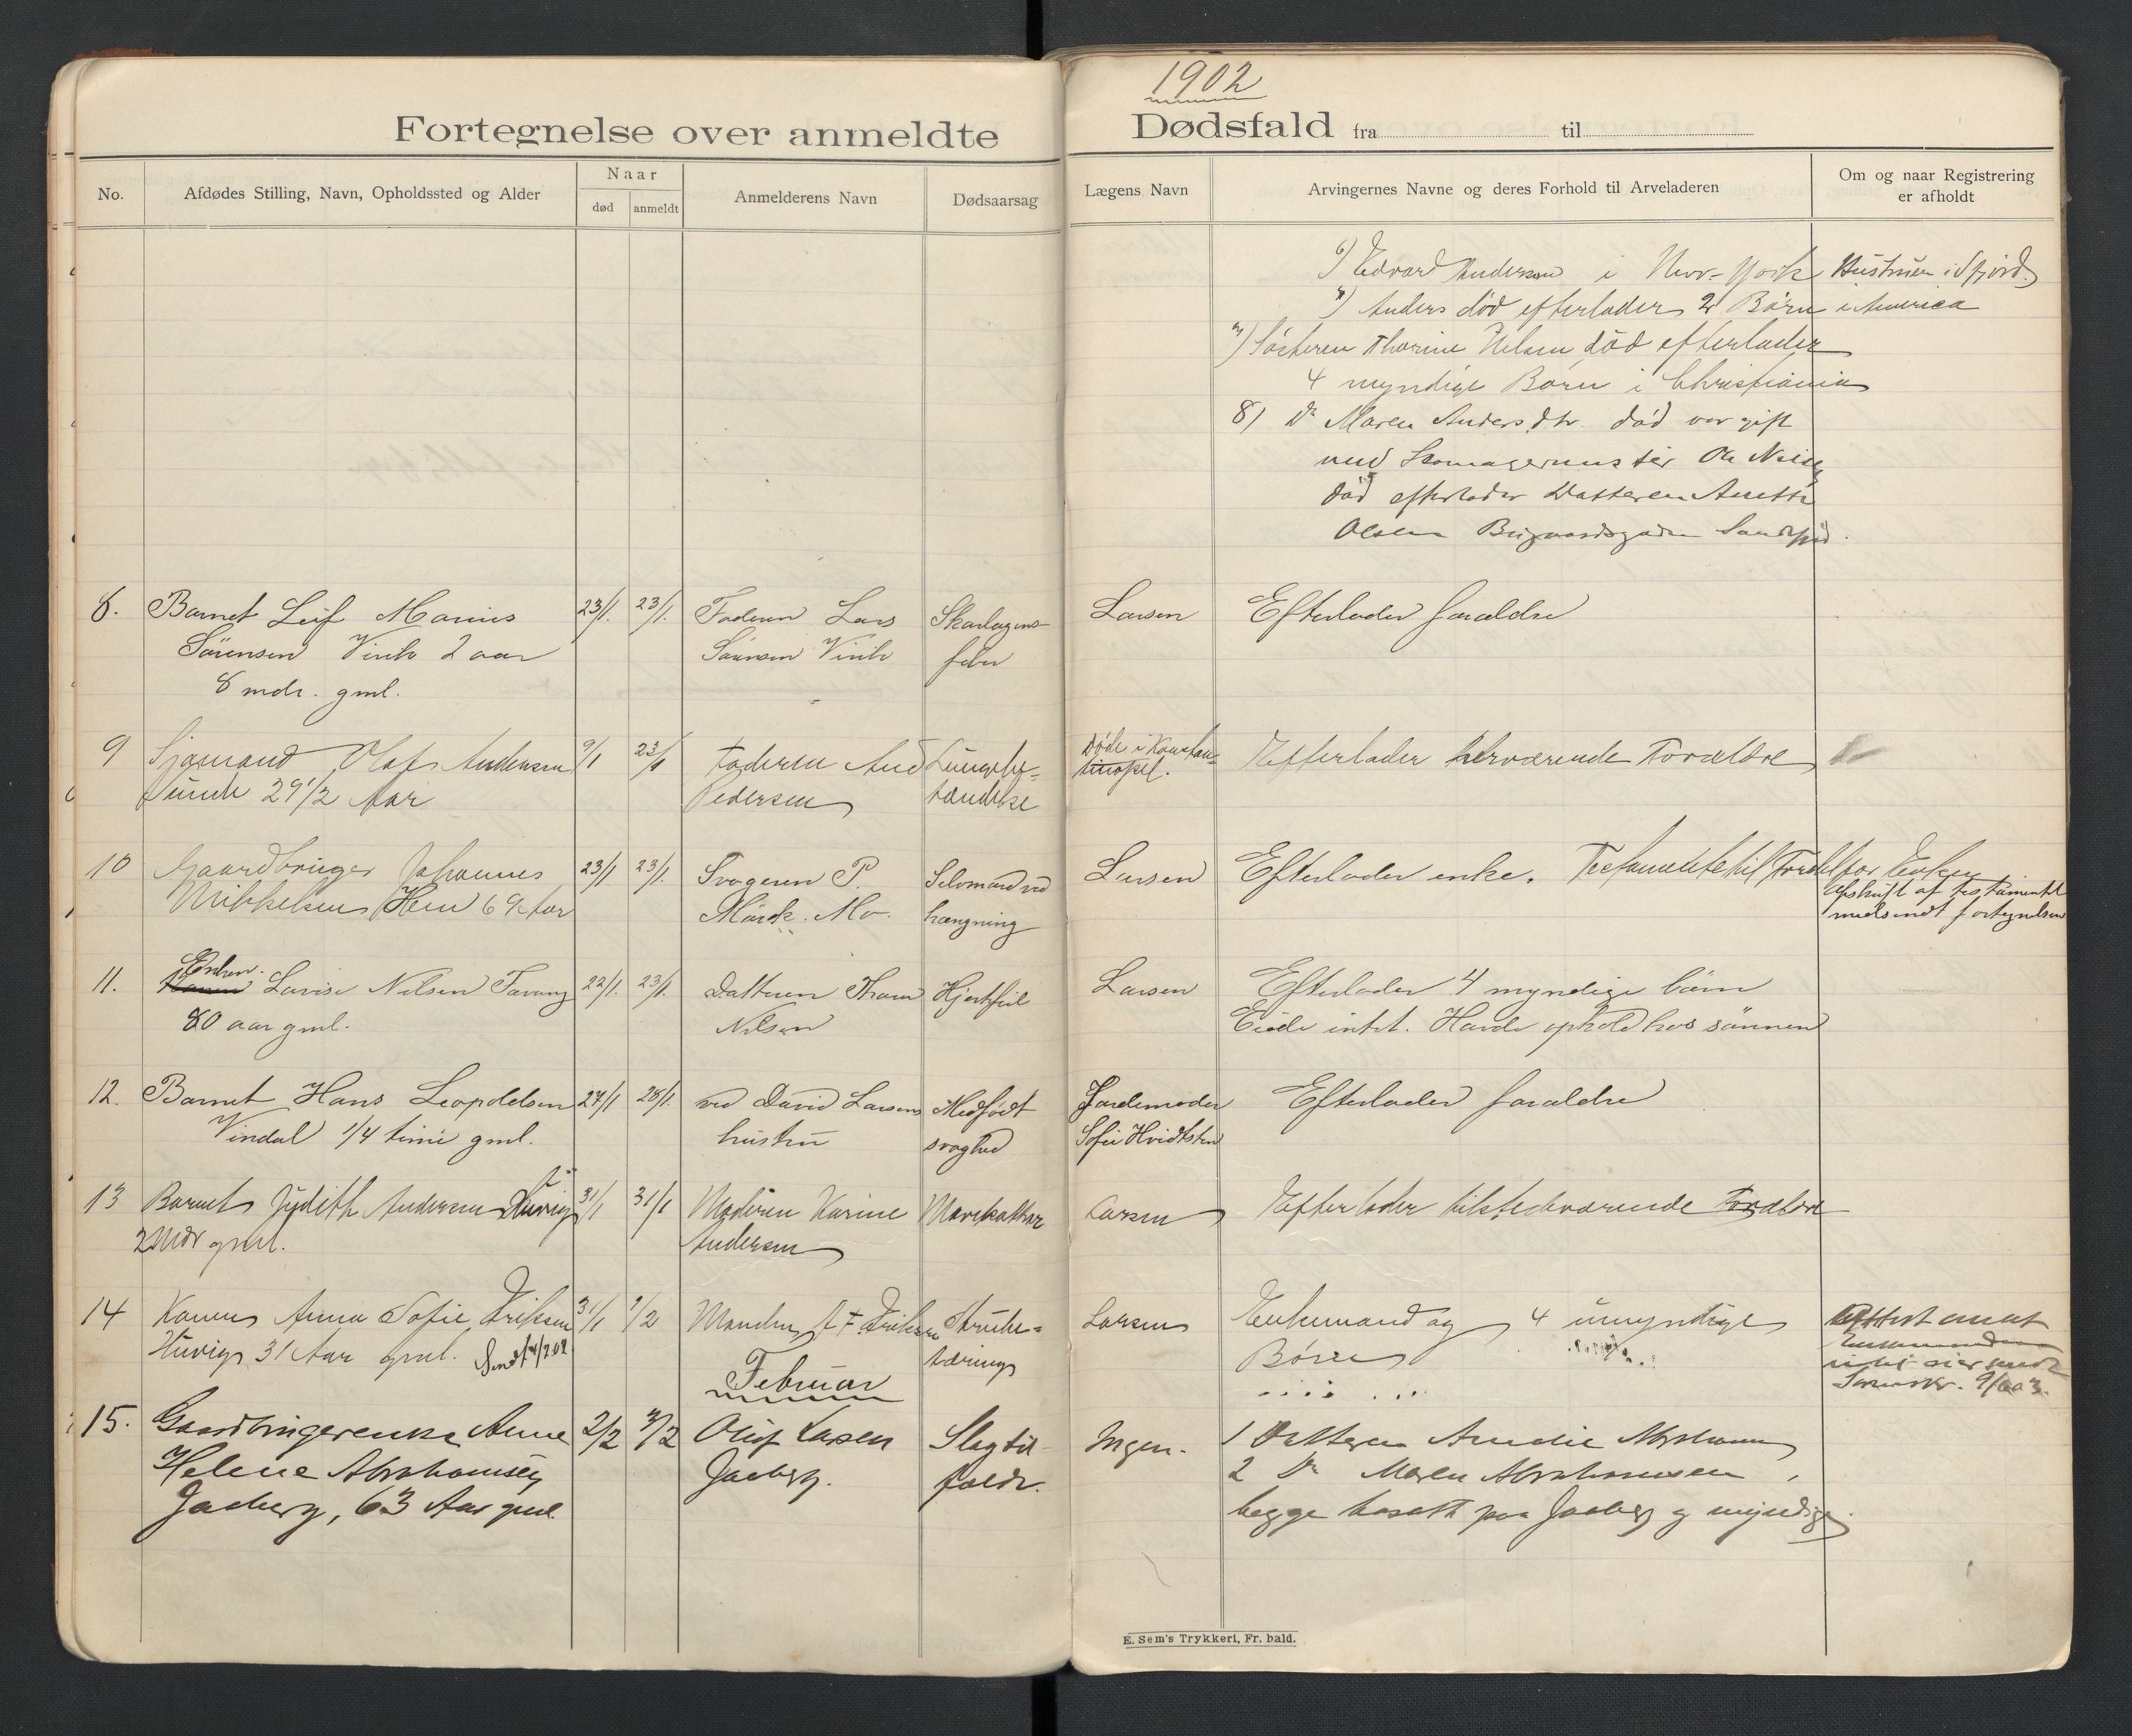 1902
Fortegnelse over anmeldte Dødsfald fra til
No.
Afdødes Stilling, Navn, Opholdssted og Alder
Naar
død
anmeldt
Anmelderens Navn
Dødsaarsag
Lægens Navn
Arvingernes Navne og deres Forhold til Arveladeren
Om og naar Registrering
er afholdt
6) Edvard Andersen i New-York Hustruen i Sfjord.
7) Anders død efterlader 2 Børn i America
7) Søsteren Thorine Nelsen død efterlader
4 myndige Børn i Christiania
8) Do Maren Andersdtr. død var gift
med Skomagermester Ole
død efterlader Datteren Anette
Olsen
8. Barnet Leif Marius 23/1. 23/1. Faderen Lars Skarlagens- Larsen Efterlader forældre
Sørensen Virik 2 aar Sørensen Virik feber
8 mdr. gml.
9 Sjømand Olaf Andersen 9/1 23/1 Faderen And Lungebe- Døde i Konstan- Efterlader herværende Forældre
29 1/2 Aar Pedersen tændelse tinopel.
10 Gaardbruger Johannes 23/1 23/1. Svogeren P. Selvmord ved Larsen Efterlader enke. Testamente til Fordel for Enken
Mikkelsen Hem 69 Aar Mørck. Mo. hængning Afskrift af testamentet
medsendt fortegnelsen
Enken.
11. Lovise Nilsen Tavang 22/1. 23/1. Datteren Thora Hjertfeil Larsen Efterlader 4 myndige børn
80 aar gml. Nilsen Eiede intet. Havde ophold hos sønnen
12. Barnet Hans Leopoldsen 27/1 28/1. ved David Larsens Medfødt Jordemoder Efterlader forældre
Vindal 1/4 time gml. hustru svaghed Sofie Hvidtsten
13 Barnet Judith Andersen Huvig 31/1 31/1 Moderen Karine Mavekathar Larsen Efterlader tilstedeværende Forældre
2 Mdr gml. Andersen
14 Konen Anna Sofie Eriksen 31/1 1/2 Manden A F Eriksen Strube- Larsen Enkemand og 4 umyndige
Huvig 31 Aar gml. tæring Børn
Februar
15. Gaardbrugerenke Anne 2/2 /2 Oluf Larsen Slagtil- Ingen. 1 Datteren Amalie Abrahamsen
Helene Abrahamsen Jaaberg. fælde. 2 Do Maren Abrahamsen,
Jaaberg, 63 Aar gml begge bosatt paa Jaaberg og myndige.
E. Sem's Trykkeri, Fr. hald.